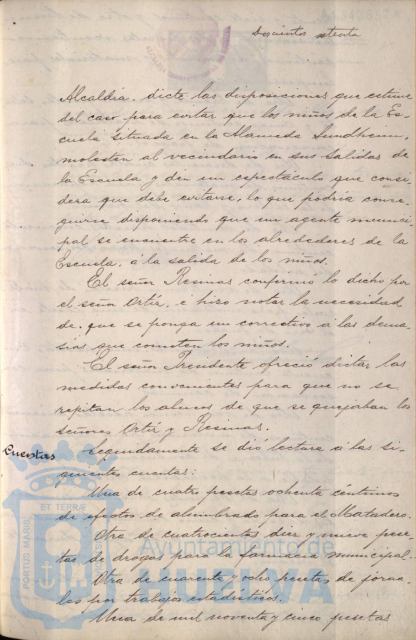 Doscientos setenta
Alcaldia, dicte las disposiciones que estime
del caso para evitar que los niños de la Es-
cuela situada en la Alameda Sundheim,
molesten al vecindario en sus salidas de
la Escuela y dén un espectáculo que consi-
dera que debe evitarse, lo que podria conse-
guirse disponiendo que un agente munici-
pal se encuentre en los alrededores de la
Escuela, á la salida de los niños.
El señor Resinas confirmó lo dicho por
el señor Ortá, é hizo notar la necesidad
de que se ponga un correctivo á las dema-
sias que cometen los niños.
El señor Presidente ofreció dictar las
medidas convenientes para que no se
repitan los abusos de que se quejaban los
señores Ortá y Resinas.
Cuentas
Seguidamente se dió lectura á las si-
guientes cuentas:
Una de cuatro pesetas ochenta céntimos
de efectos de alumbrado para el Matadero.
Otra de cuatrocientas diez y nueve pese-
tas de drogas para la farmacia municipal.
Otra de cuarenta y ocho pesetas de jorna-
les por trabajos estadísticos.
Una de mil noventa y cinco pesetas
PORTUS MARIS
ET TERRAE
Ayuntamiento de
HUELVA